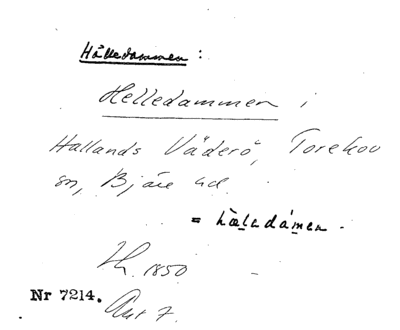 Hälledammen :
Helledammen i
Hallands Väderö, Torekov
sn, Bjäre hd.
= hæ̀lədámən.
1850
Nr 7214.
Ant 7.